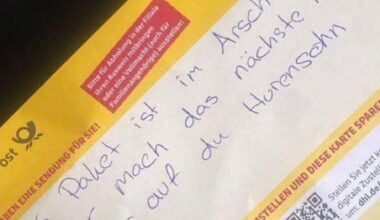 Bitte für Abholung in der Filiale
Ihren Ausweis mitbringen
oder eine Vollmacht (auch für
Familienangehörige) ausstellen!
ost
BEN EINE SENDUNG FÜR SIE!
Paket ist im Arsch
mach das nächste
auf du Hurensohn
STELLEN UND DIESE KARTE SPARE
Stellen Sie jetzt
digitale Zustelle
um. dhl.de